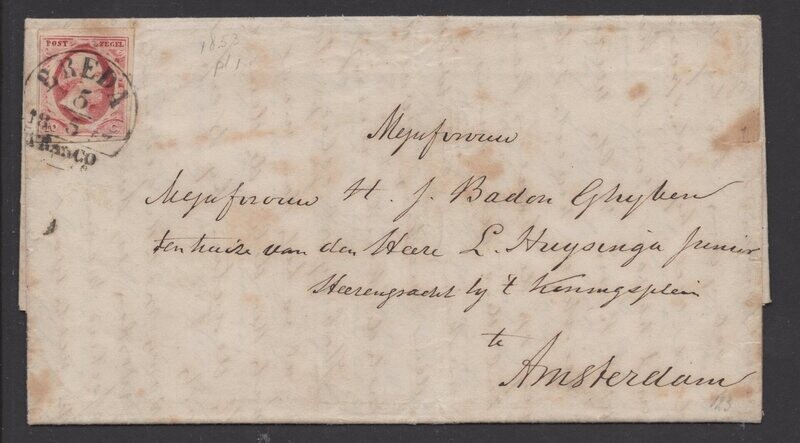 POST ZEGEL
BREDA
5
5
FRANCO
1853
pl 1
Mejufvrouw
Mejufvrouw H. J. Badon Ghyben
ten huize van den Heere L. Huysinga Junior
Heerengracht by 't Koningsplein
te
Amsterdam
123